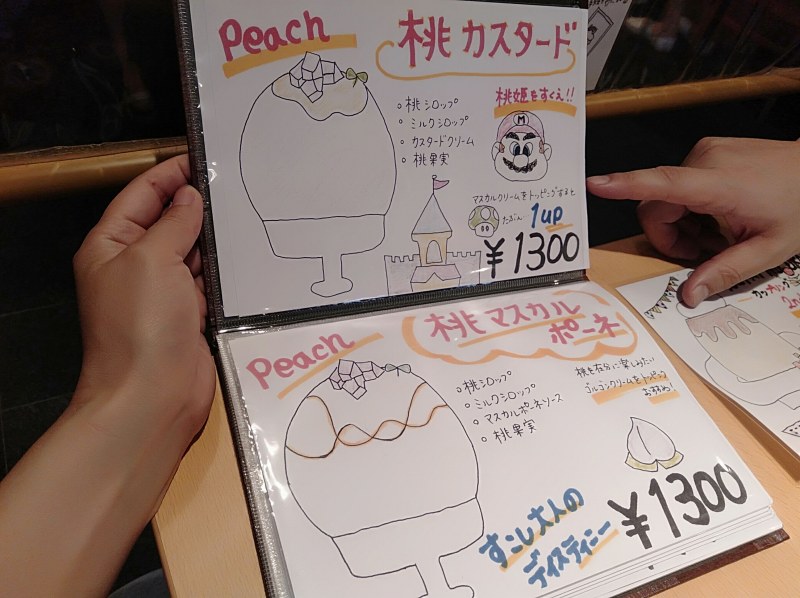 Peach
桃カスタード
・桃シロップ
・ミルクシロップ
・カスタードクリーム
・桃果実
桃姫をすくえ!!
M
マスカルクリームをトッピングすると
たぶん 1up
¥1300
Peach
桃マスカル
ポーネ
・桃シロップ
・ミルクシロップ
・マスカルポーネソース
・桃果実
桃を存分に楽しみたい
ゴルゴンクリームをトッピング
おすすめ!
すこし大人の
デスティニー
¥1300